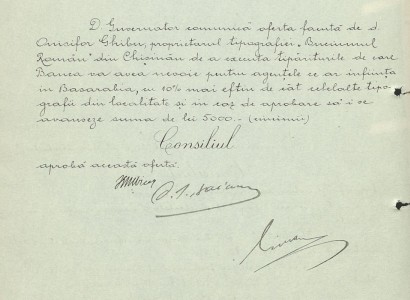 D. Guvernator comunică oferta facută de d.
Onisifor Ghibu, proprietarul tipografiei "
Român" din Chișinău de a executa tipăriturile de cari
Banca va avea nevoie pentru agențiile ce ar înființa
in Basarabia, cu 10% mai eftin de cât celelalte tipo-
grafii din localitate și in caz de aprobare să i se
avanseze suma de lei 5000.- (cincimii)
Consiliul
aprobă această ofertă.